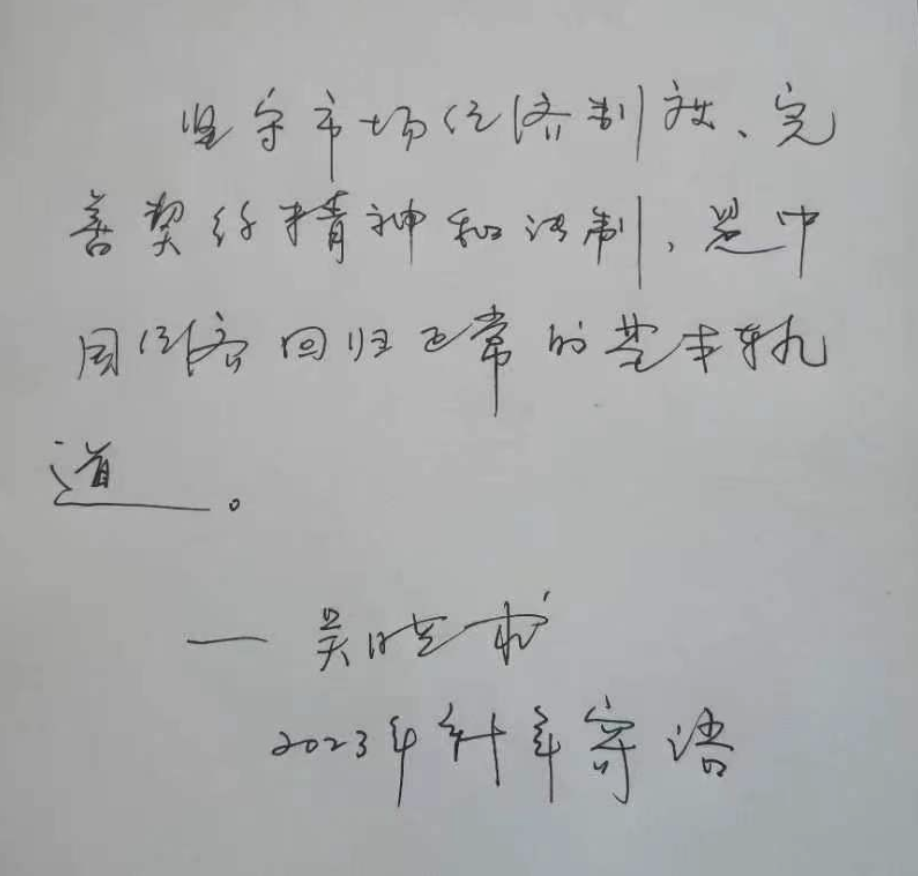 坚守市场经济制度、完
善契约精神和法制，是中
国经济回归正常的基本轨
道。
— 吴晓求
2023年新年寄语